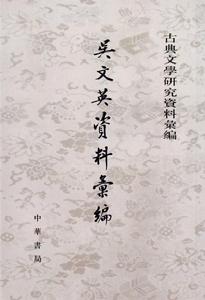 古典文學研究資料彙編
吳文英資料彙編
中華書局